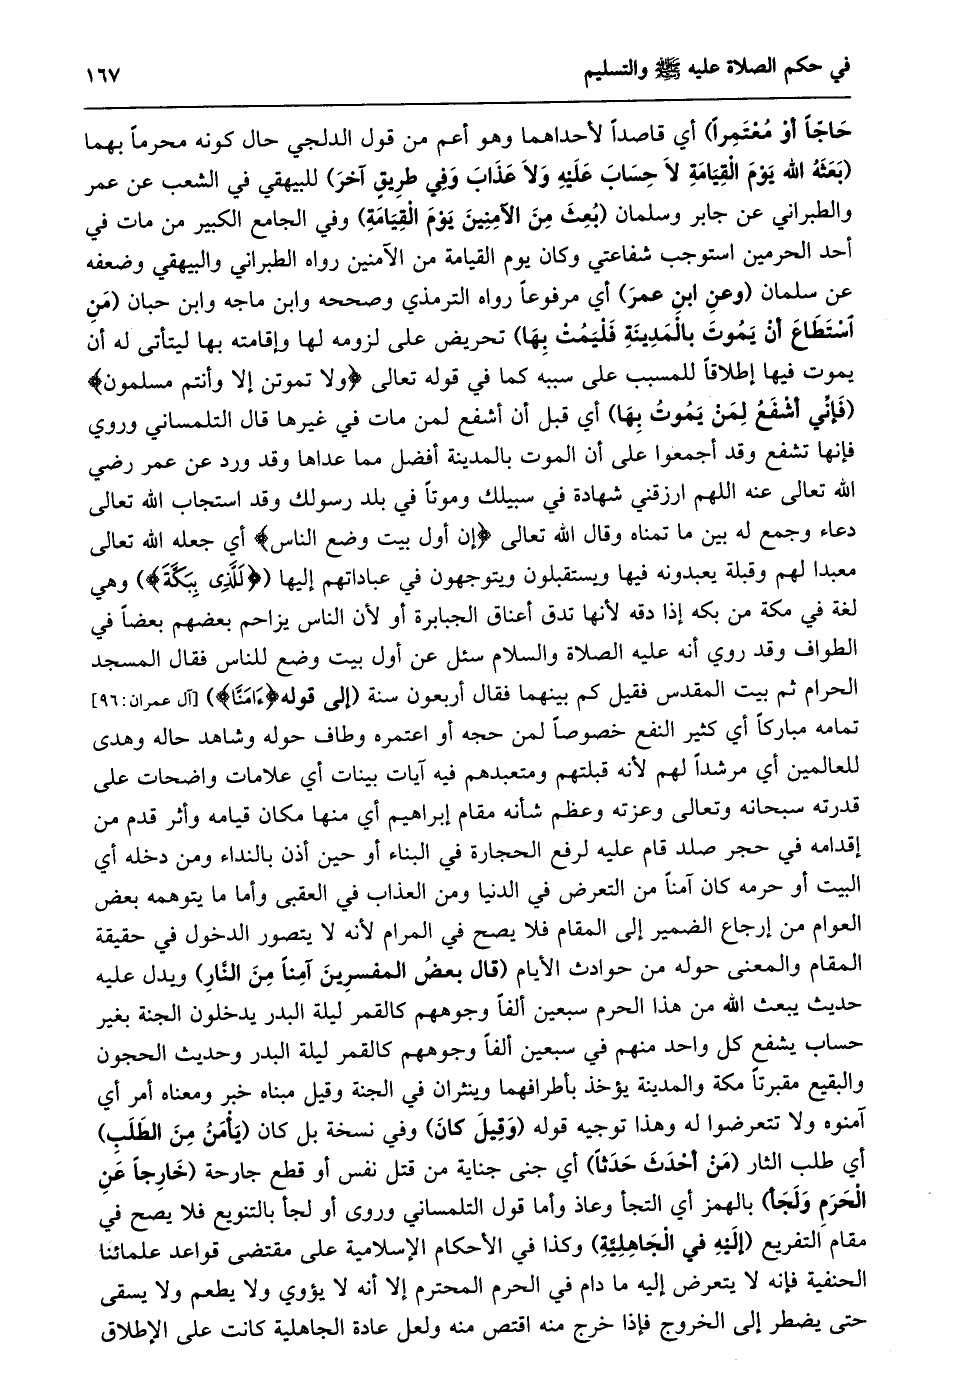 في حكم الصلاة عليه ﷺ والتسليم
١٦٧
حَاجّاً أوْ مُعْتَمِراً) أي قاصداً لأحداهما وهو أعم من قول الدلجي حال كونه محرماً بهما
(بَعَثَهُ الله يَوْمَ الْقِيَامَةِ لاَ حِسَابَ عَلَيْهِ وَلاَ عَذَابَ وَفِي طرِيقٍ آخرَ) للبيهقي في الشعب عن عمر
والطبراني عن جابر وسلمان (بُعِثَ مِنَ الآمِنِينَ يَوْمَ الْقِيَامَةِ) وفي الجامع الكبير من مات في
أحد الحرمين استوجب شفاعتي وكان يوم القيامة من الآمنين رواه الطبراني والبيهقي وضعفه
عن سلمان (وعنِ ابنِ عمرَ) أي مرفوعاً رواه الترمذي وصححه وابن ماجه وابن حبان (مَنِ
اَسْتَطَاعَ أنْ يَمُوتَ بالْمَدِينَةِ فَلْيَمُتْ بِهَا) تحريض على لزومه لها وإقامته بها ليتأتى له أن
يموت فيها إطلاقاً للمسبب على سببه كما في قوله تعالى ﴿ولا تموتن إلا وأنتم مسلمون﴾
(فَإنِّي أشْفَعُ لِمَنْ يَمُوتُ بِهَا) أي قبل أن أشفع لمن مات في غيرها قال التلمساني وروي
فإنها تشفع وقد أجمعوا على أن الموت بالمدينة أفضل مما عداها وقد ورد عن عمر رضي
الله تعالى عنه اللهم ارزقني شهادة في سبيلك وموتاً في بلد رسولك وقد استجاب الله تعالى
دعاء وجمع له بين ما تمناه وقال الله تعالى ﴿إن أول بيت وضع الناس﴾ أي جعله الله تعالى
معبدا لهم وقبلة يعبدونه فيها ويستقبلون ويتوجهون في عباداتهم إليها (﴿لَلَّذِى بِبَكَّةَ﴾) وهي
لغة في مكة من بكه إذا دقه لأنها تدق أعناق الجبابرة أو لأن الناس يزاحم بعضهم بعضاً في
الطواف وقد روي أنه عليه الصلاة والسلام سئل عن أول بيت وضع للناس فقال المسجد
الحرام ثم بيت المقدس فقيل كم بينهما فقال أربعون سنة (إلى قوله﴿ءَامَنًا﴾) [آل عمران: ٩٦]
تمامه مباركاً أي كثير النفع خصوصاً لمن حجه أو اعتمره وطاف حوله وشاهد حاله وهدى
للعالمين أي مرشداً لهم لأنه قبلتهم ومتعبدهم فيه آيات بينات أي علامات واضحات على
قدرته سبحانه وتعالى وعزته وعظم شأنه مقام إبراهيم أي منها مكان قيامه وأثر قدم من
إقدامه في حجر صلد قام عليه لرفع الحجارة في البناء أو حين أذن بالنداء ومن دخله أي
البيت أو حرمه كان آمناً من التعرض في الدنيا ومن العذاب في العقبى وأما ما يتوهمه بعض
العوام من إرجاع الضمير إلى المقام فلا يصح في المرام لأنه لا يتصور الدخول في حقيقة
المقام والمعنى حوله من حوادث الأيام (قال بعضُ المفسرِينَ آمِناً مِنَ النَّارِ) ويدل عليه
حديث يبعث الله من هذا الحرم سبعين ألفاً وجوههم كالقمر ليلة البدر يدخلون الجنة بغير
حساب يشفع كل واحد منهم في سبعين ألفاً وجوههم كالقمر ليلة البدر وحديث الحجون
والبقيع مقبرتاً مكة والمدينة يؤخذ بأطرافهما وينثران في الجنة وقيل مبناه خبر ومعناه أمر أي
آمنوه ولا تتعرضوا له وهذا توجيه قوله (وَقِيلَ كانَ) وفي نسخة بل كان (يَأْمَنُ مِنَ الطَلَبِ)
أي طلب الثار (مَنْ أحْدَثَ حَدَثاً) أي جنى جناية من قتل نفس أو قطع جارحة (خَارِجاً عَنِ
الْحَرَمِ وَلَجَأَ) بالهمز أي التجأ وعاذ وأما قول التلمساني وروى أو لجأ بالتنويع فلا يصح في
مقام التفريع (إلَيْهِ في الْجَاهِلِيَّةِ) وكذا في الأحكام الإسلامية على مقتضى قواعد علمائنا
الحنفية فإنه لا يتعرض إليه ما دام في الحرم المحترم إلا أنه لا يؤوي ولا يطعم ولا يسقى
حتى يضطر إلى الخروج فإذا خرج منه اقتص منه ولعل عادة الجاهلية كانت على الإطلاق